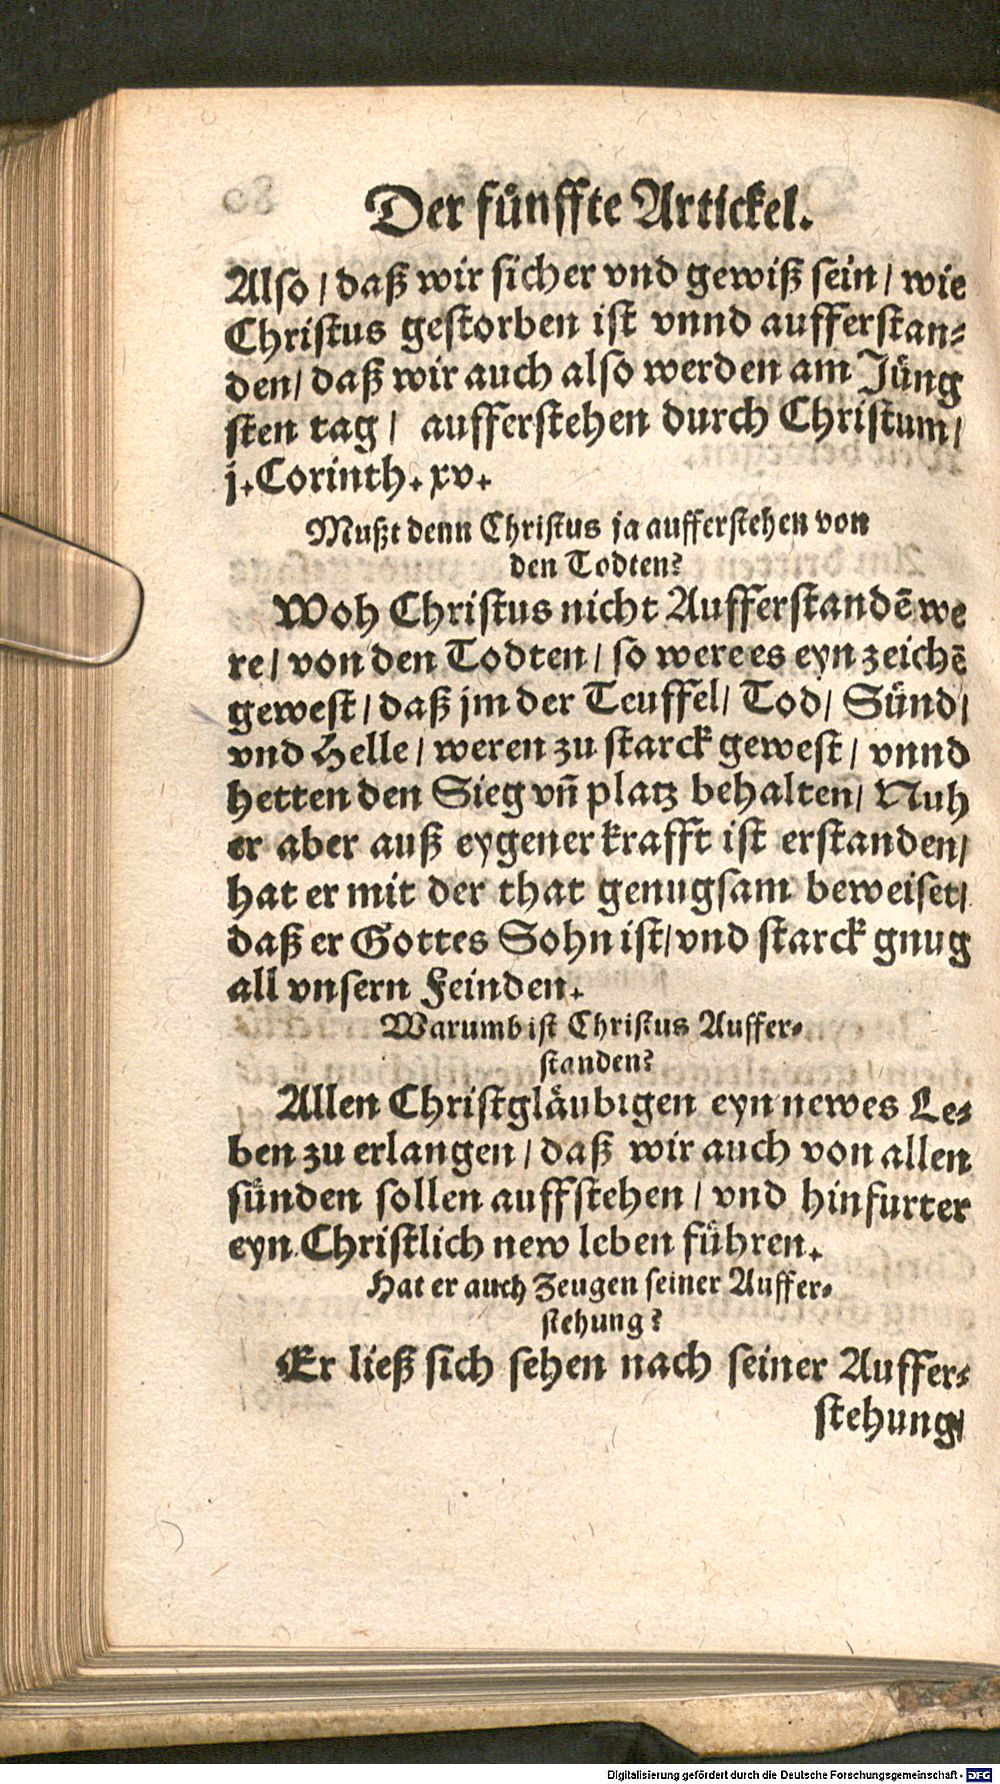 Der fünffte Artickel.
Also / daß wir sicher vnd gewiß sein / wie
Christus gestorben ist vnnd aufferstan-
den / daß wir auch also werden am Jüng
sten tag / aufferstehen durch Christum /
j. Corinth. xv.
Mußt denn Christus ja aufferstehen von
den Todten?
Woh Christus nicht Aufferstandē we
re / von den Todten / so were es eyn zeichē
gewest / daß jm der Teuffel / Tod / Sünd /
vnd Helle / weren zu starck gewest / vnnd
hetten den Sieg vn̄ platz behalten / Nuh
er aber auß eygener krafft ist erstanden /
hat er mit der that genugsam beweiset /
daß er Gottes Sohn ist / vnd starck gnug
all vnsern Feinden.
Warumb ist Christus Auffer-
standen?
Allen Christgläubigen eyn newes Le-
ben zu erlangen / daß wir auch von allen
sünden sollen auffstehen / vnd hinfurter
eyn Christlich new leben führen.
Hat er auch Zeugen seiner Auffer-
stehung?
Er ließ sich sehen nach seiner Auffer-
stehung /
Digitalisierung gefördert durch die Deutsche Forschungsgemeinschaft - DFG